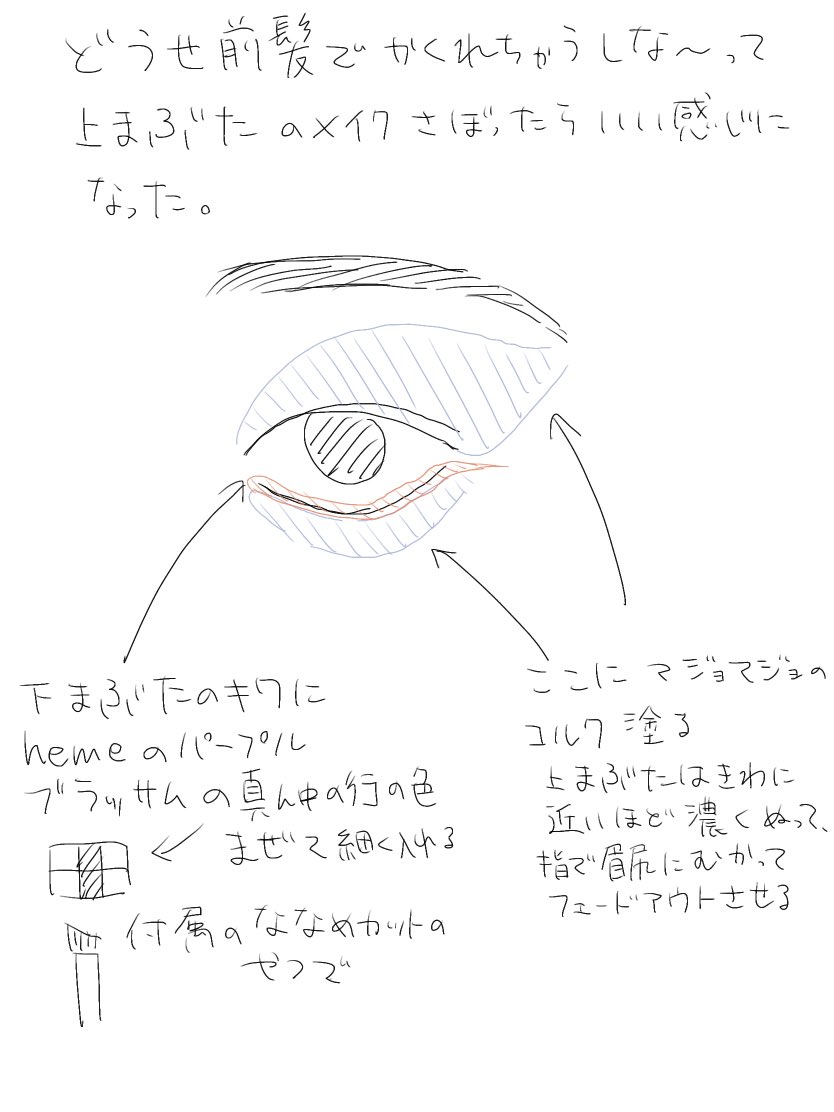 どうせ前髪でかくれちゃうしな〜って
上まぶたのメイクさぼったらいい感じに
なった。
下まぶたのキワに
hemeのパープル
ブラッサムの真ん中の行の色
まぜて細く入れる
付属のななめカットの
やつで
ここにマジョマジョの
コルク塗る
上まぶたはきわに
近いほど濃くぬって、
指で眉尻にむかって
フェードアウトさせる